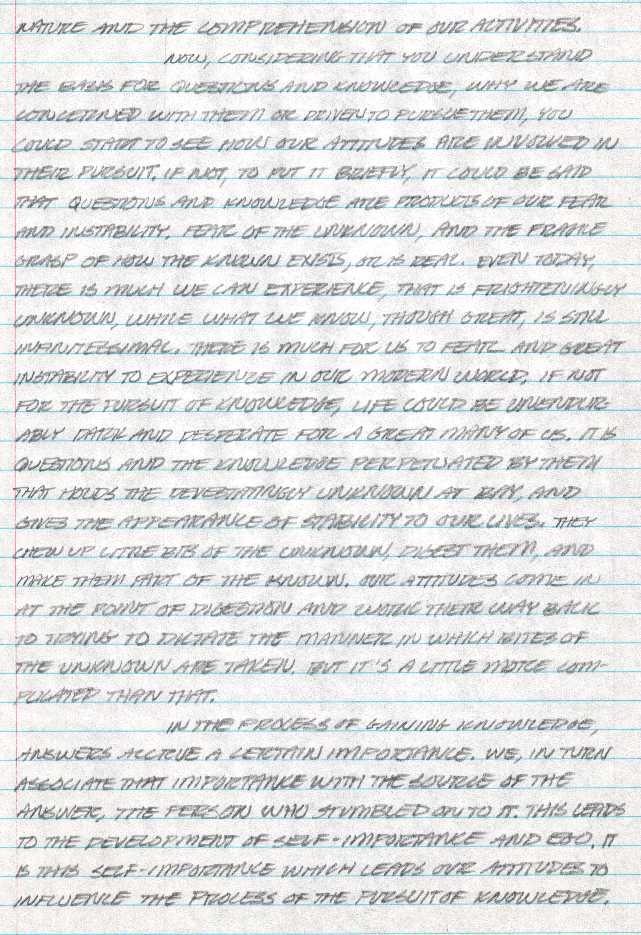 NATURE AND THE COMPREHENSION OF OUR ACTIVITIES.
NOW, CONSIDERING THAT YOU UNDERSTAND
THE BASIS FOR QUESTIONS AND KNOWLEDGE, WHY WE ARE
CONCERNED WITH THEM OR DRIVEN TO PURSUE THEM, YOU
COULD START TO SEE HOW OUR ATTITUDES ARE INVOLVED IN
THEIR PURSUIT. IF NOT, TO PUT IT BRIEFLY, IT COULD BE SAID
THAT QUESTIONS AND KNOWLEDGE ARE PRODUCTS OF OUR FEAR
AND INSTABILITY. FEAR OF THE UNKNOWN, AND THE FRAGILE
GRASP OF HOW THE KNOWN EXISTS, OR IS REAL. EVEN TODAY,
THERE IS MUCH WE CAN EXPERIENCE, THAT IS FRIGHTENINGLY
UNKNOWN, WHILE WHAT WE KNOW, THOUGH GREAT, IS STILL
INFINITESSIMAL. THERE IS MUCH FOR US TO FEAR AND GREAT
INSTABILITY TO EXPERIENCE IN OUR MODERN WORLD. IF NOT
FOR THE PURSUIT OF KNOWLEDGE, LIFE COULD BE UNENDUR-
ABLY DARK AND DESPERATE FOR A GREAT MANY OF US. IT IS
QUESTIONS AND THE KNOWLEDGE PERPETUATED BY THEM
THAT HOLDS THE DEVESTATINGLY UNKNOWN AT BAY, AND
GIVES THE APPEARANCE OF STABILITY TO OUR LIVES. THEY
CHEW UP LITTLE BITS OF THE UNKNOWN, DIGEST THEM, AND
MAKE THEM PART OF THE KNOWN. OUR ATTITUDES COME IN
AT THE POINT OF DIGESTION AND WORK THEIR WAY BACK
TO TRYING TO DICTATE THE MANNER IN WHICH BITES OF
THE UNKNOWN ARE TAKEN. BUT IT'S A LITTLE MORE COM-
PLICATED THAN THAT.
IN THE PROCESS OF GAINING KNOWLEDGE,
ANSWERS ACCRUE A CERTAIN IMPORTANCE. WE, IN TURN
ASSOCIATE THAT IMPORTANCE WITH THE SOURCE OF THE
ANSWER, THE PERSON WHO STUMBLED ON TO IT. THIS LEADS
TO THE DEVELOPMENT OF SELF-IMPORTANCE AND EGO. IT
IS THIS SELF-IMPORTANCE WHICH LEADS OUR ATTITUDES TO
INFLUENCE THE PROCESS OF THE PURSUIT OF KNOWLEDGE.